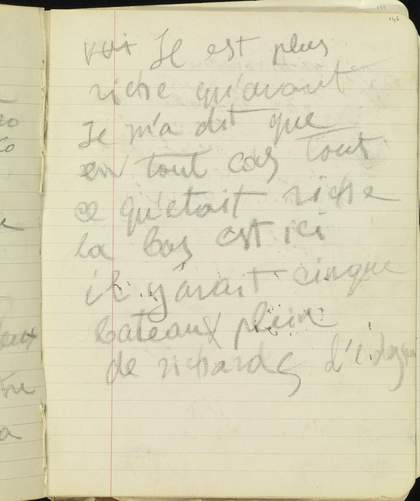 Il est plus
riche qu'avant
Il m'a dit que
en tout cas tout
ce qu'etait riche
la bas est ici
il y avait cinque
bateaux plein
de richards